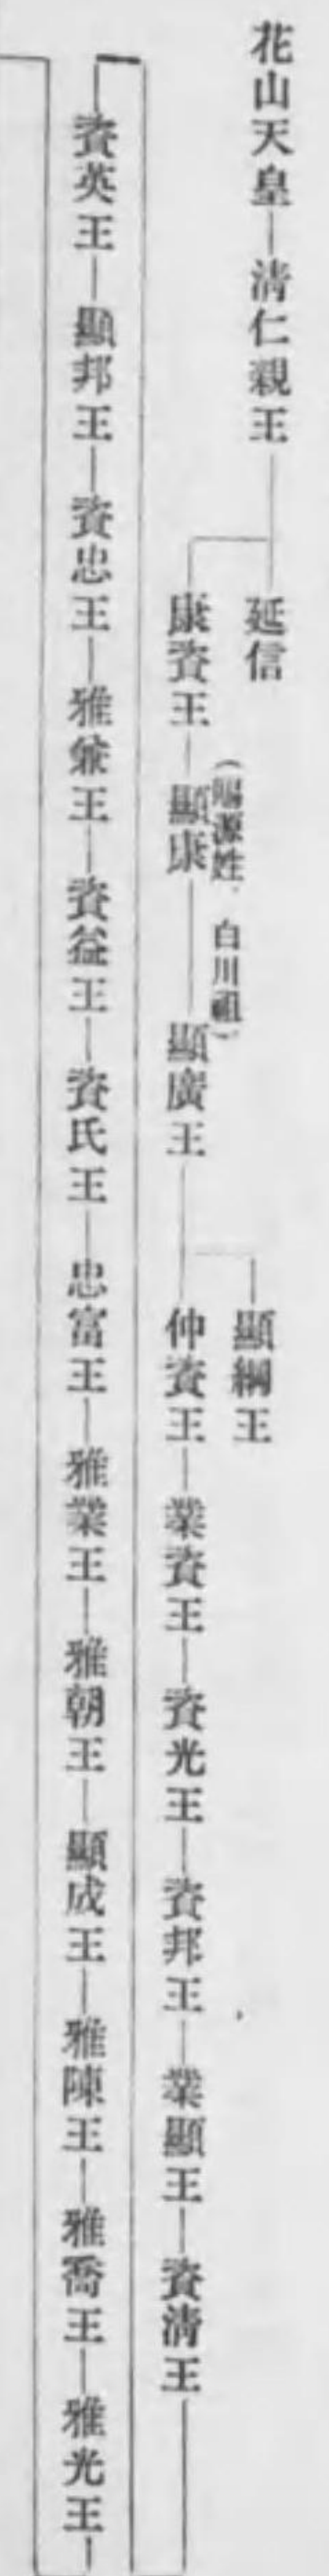 花山天皇—淸仁親王
延信
康資王—顯康—顯廣王
(賜源姓、白川祖)
顯綱王
仲資王—業資王—資光王—資邦王—業顯王—資淸王
資英王—顯邦王—資忠王—雅兼王—資益王—資氏王—忠富王—雅業王—雅朝王—顯成王—雅陳王—雅喬王—雅光王